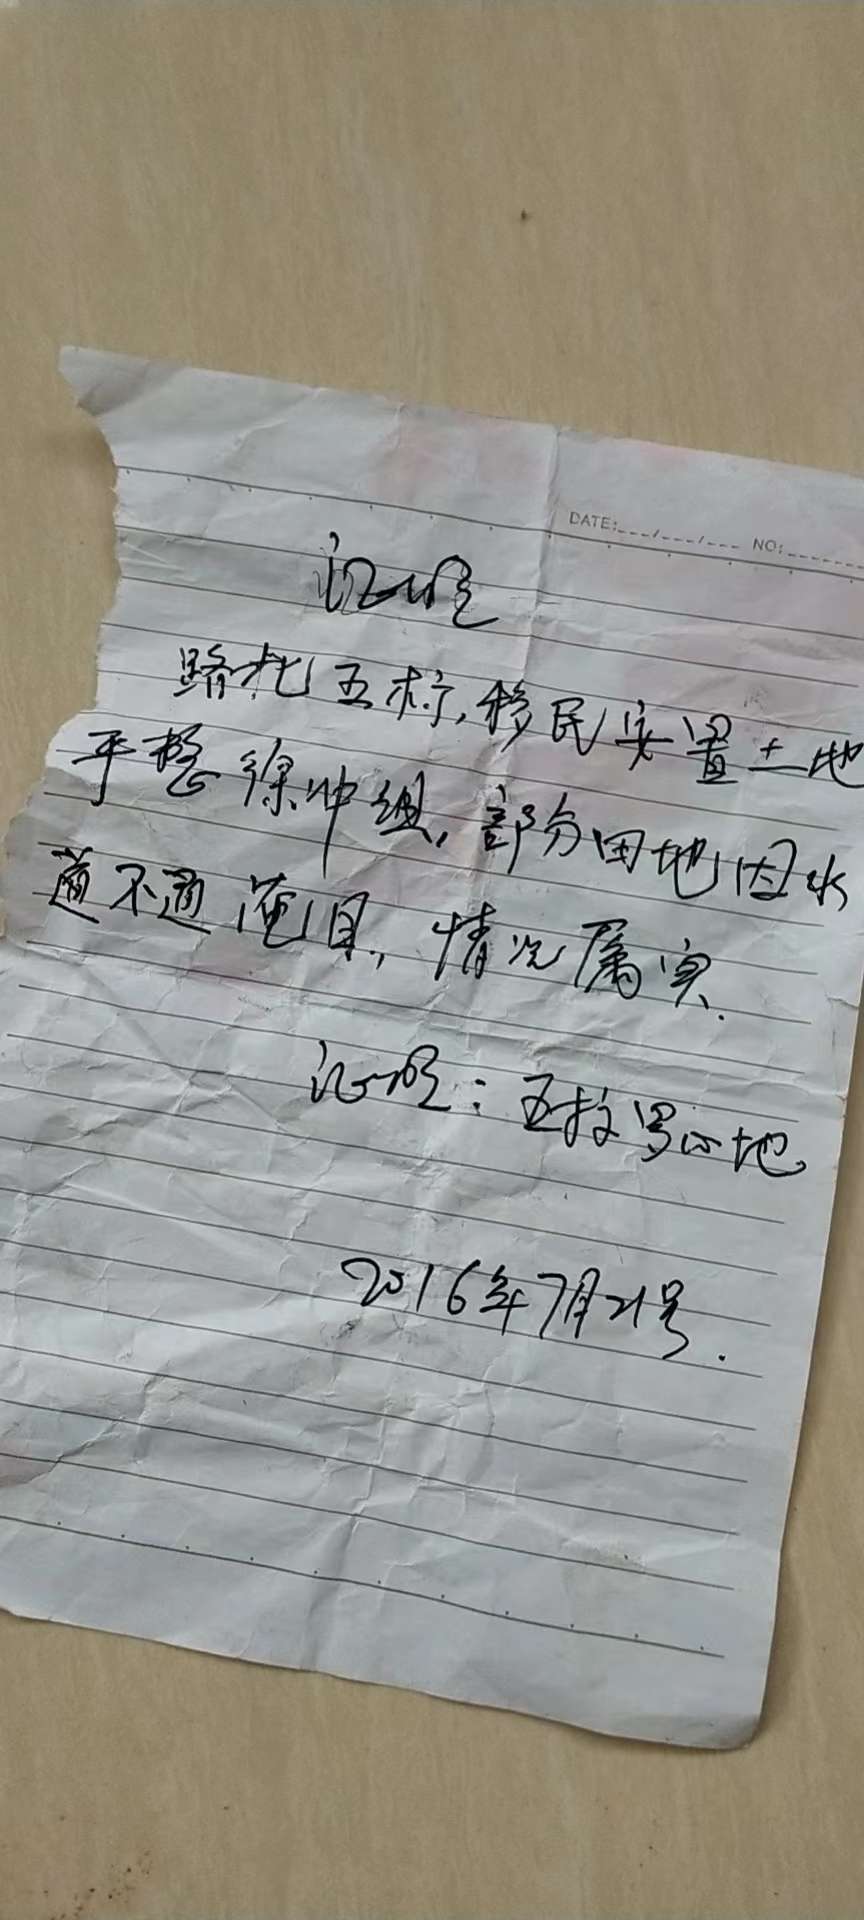 DATE:___/___/___ NO:______
证明
路北五标,移民安置土地
平整徐冲组,部分田地因水
道不通淹没,情况属实.
证明:五标
2016年7月21号.